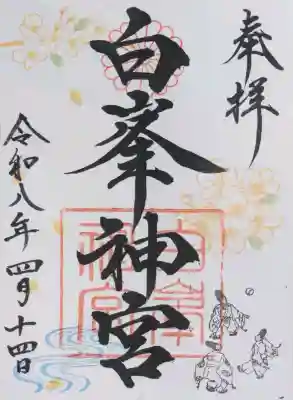 奉拝
白峯神宮
令和八年四月十四日